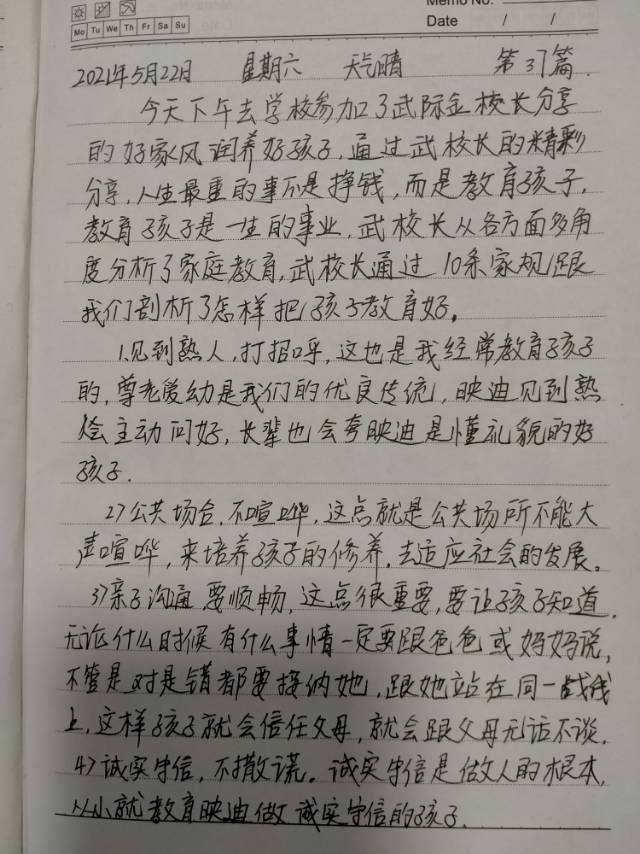 Memo No.
Mo Tu We Th Fr Sa Su
Date / /
2021年5月22日 星期六 天气晴 第37篇.
今天下午去学校参加了武际金校长分享
的好家风润养好孩子,通过武校长的精彩
分享,人生最重的事不是挣钱,而是教育孩子,
教育孩子是一生的事业,武校长从各方面多角
度分析了家庭教育,武校长通过10条家规跟
我们剖析了怎样把孩子教育好。
1.见到熟人,打招呼,这也是我经常教育孩子
的,尊老爱幼是我们的优良传统,映迪见到熟
人会主动问好,长辈也会夸映迪是懂礼貌的好
孩子.
2)公共场合,不喧哗,这点就是公共场所不能大
声喧哗,来培养孩子的修养,去适应社会的发展。
3)亲子沟通要顺畅,这点很重要,要让孩子知道,
无论什么时候有什么事情一定要跟爸爸或妈妈说,
不管是对是错都要接纳她,跟她站在同一战线
上,这样孩子就会信任父母,就会跟父母无话不谈.
4)诚实守信,不撒谎。诚实守信是做人的根本,
从小就教育映迪做诚实守信的孩子.